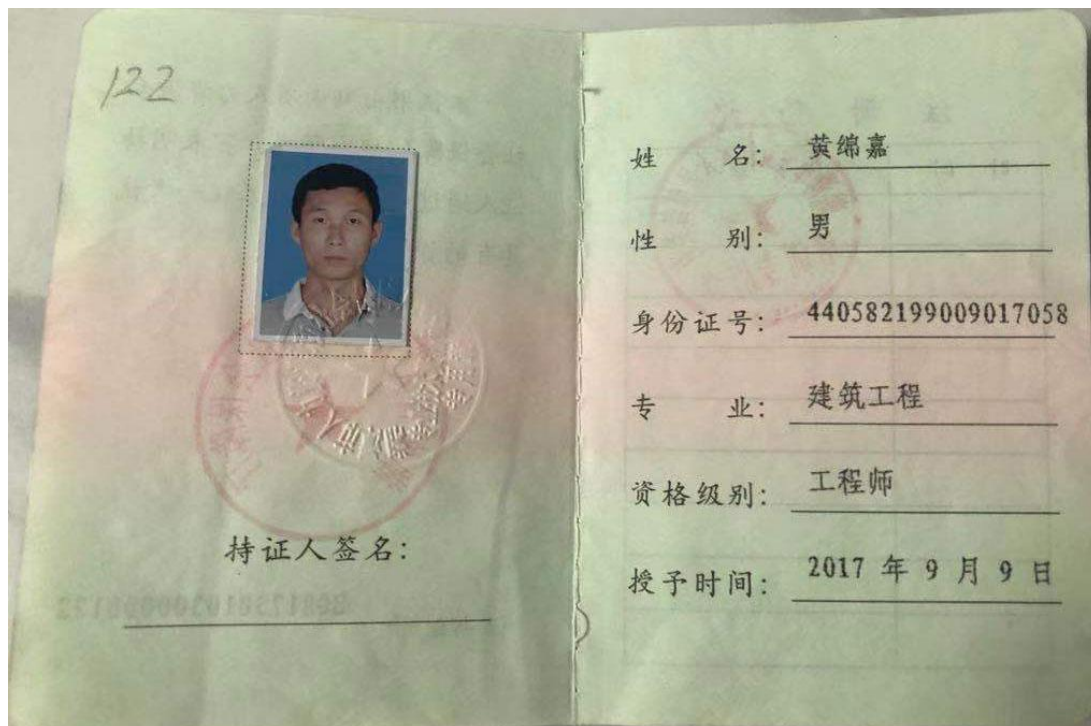 122
持证人签名：
姓 名： 黄绵嘉
性 别： 男
身份证号： 440582199009017058
专 业： 建筑工程
资格级别： 工程师
授予时间： 2017 年 9 月 9 日